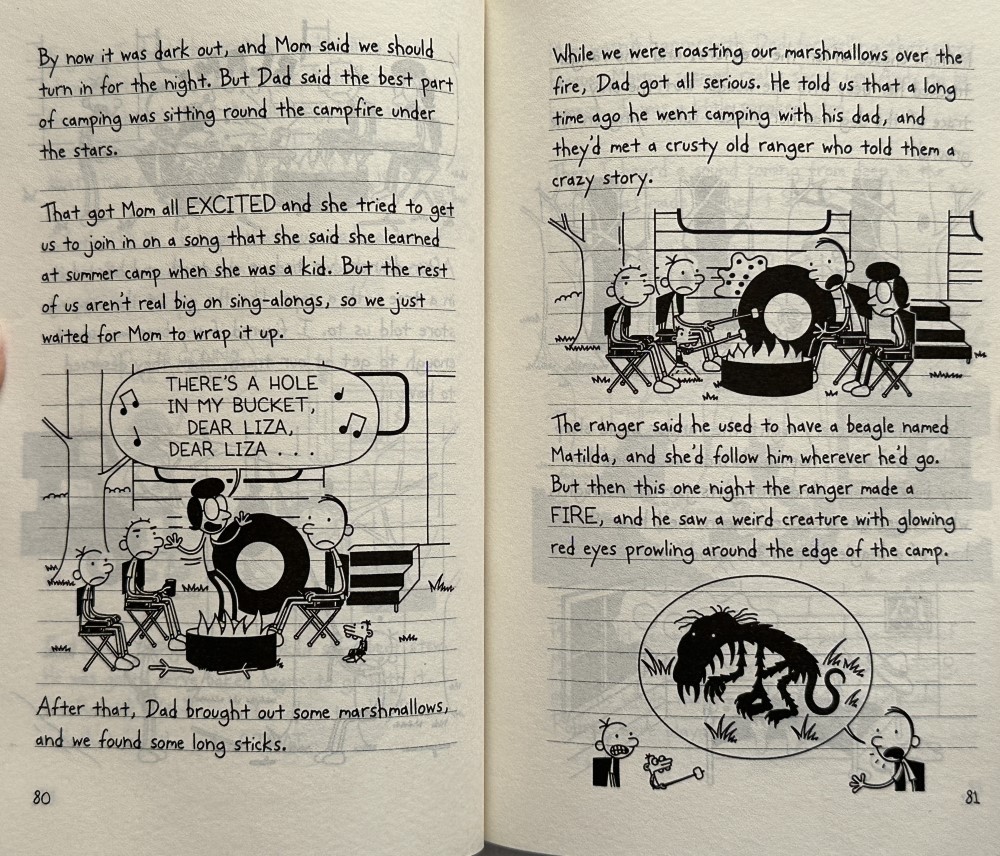 By now it was dark out, and Mom said we should
turn in for the night. But Dad said the best part
of camping was sitting round the campfire under
the stars.
That got Mom all EXCITED and she tried to get
us to join in on a song that she said she learned
at summer camp when she was a kid. But the rest
of us aren't real big on sing-alongs, so we just
waited for Mom to wrap it up.
THERE'S A HOLE
IN MY BUCKET,
DEAR LIZA,
DEAR LIZA . . .
After that, Dad brought out some marshmallows,
and we found some long sticks.
80
While we were roasting our marshmallows over the
fire, Dad got all serious. He told us that a long
time ago he went camping with his dad, and
they'd met a crusty old ranger who told them a
crazy story.
The ranger said he used to have a beagle named
Matilda, and she'd follow him wherever he'd go.
But then this one night the ranger made a
FIRE, and he saw a weird creature with glowing
red eyes prowling around the edge of the camp.
81